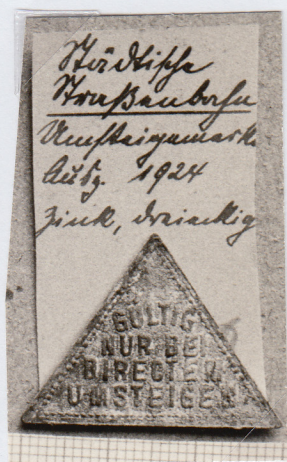 Städtische
Straßenbahn
Umsteigemarke
Ausg. 1924
Zink, dreieckig
GÜLTIG
NUR BEI
DIRECTEM
UMSTEIGEN